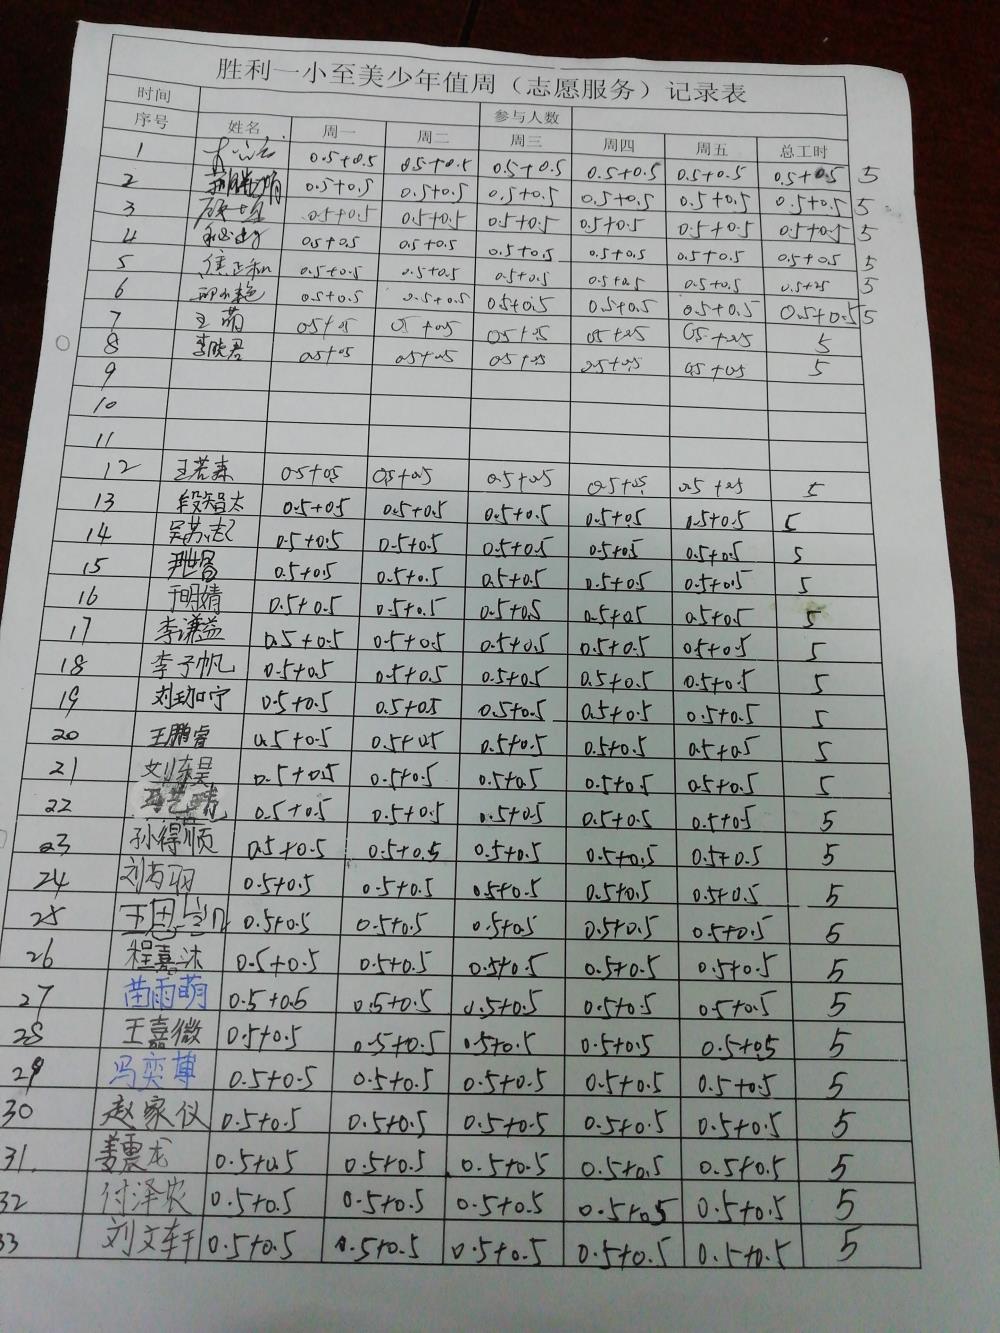 胜利一小至美少年值周（志愿服务）记录表
时间 参与人数
序号 姓名 周一 周二 周三 周四 周五 总工时
1 0.5+0.5 0.5+0.5 0.5+0.5 0.5+0.5 0.5+0.5 0.5+0.5 5
2 0.5+0.5 0.5+0.5 0.5+0.5 0.5+0.5 0.5+0.5 0.5+0.5 5
3 0.5+0.5 0.5+0.5 0.5+0.5 0.5+0.5 0.5+0.5 0.5+0.5 5
4 0.5+0.5 0.5+0.5 0.5+0.5 0.5+0.5 0.5+0.5 0.5+0.5 5
5 焦正和 0.5+0.5 0.5+0.5 0.5+0.5 0.5+0.5 0.5+0.5 0.5+0.5 5
6 0.5+0.5 0.5+0.5 0.5+0.5 0.5+0.5 0.5+0.5 0.5+0.5 5
7 王萌 0.5+0.5 0.5+0.5 0.5+0.5 0.5+0.5 0.5+0.5 5
8 李映君 0.5+0.5 0.5+0.5 0.5+0.5 0.5+0.5 0.5+0.5 5
9
10
11
12 王若森 0.5+0.5 0.5+0.5 0.5+0.5 0.5+0.5 0.5+0.5 5
13 段智太 0.5+0.5 0.5+0.5 0.5+0.5 0.5+0.5 0.5+0.5 5
14 0.5+0.5 0.5+0.5 0.5+0.5 0.5+0.5 0.5+0.5 5
15 0.5+0.5 0.5+0.5 0.5+0.5 0.5+0.5 0.5+0.5 5
16 于明婧 0.5+0.5 0.5+0.5 0.5+0.5 0.5+0.5 0.5+0.5 5
17 李谦益 0.5+0.5 0.5+0.5 0.5+0.5 0.5+0.5 0.5+0.5 5
18 李子帆 0.5+0.5 0.5+0.5 0.5+0.5 0.5+0.5 0.5+0.5 5
19 0.5+0.5 0.5+0.5 0.5+0.5 0.5+0.5 0.5+0.5 5
20 王鹏睿 0.5+0.5 0.5+0.5 0.5+0.5 0.5+0.5 0.5+0.5 5
21 0.5+0.5 0.5+0.5 0.5+0.5 0.5+0.5 0.5+0.5 5
22 0.5+0.5 0.5+0.5 0.5+0.5 0.5+0.5 0.5+0.5 5
23 孙得顺 0.5+0.5 0.5+0.5 0.5+0.5 0.5+0.5 0.5+0.5 5
24 0.5+0.5 0.5+0.5 0.5+0.5 0.5+0.5 0.5+0.5 5
25 0.5+0.5 0.5+0.5 0.5+0.5 0.5+0.5 0.5+0.5 5
26 程嘉沐 0.5+0.5 0.5+0.5 0.5+0.5 0.5+0.5 0.5+0.5 5
27 苗雨萌 0.5+0.5 0.5+0.5 0.5+0.5 0.5+0.5 0.5+0.5 5
28 王嘉微 0.5+0.5 0.5+0.5 0.5+0.5 0.5+0.5 0.5+0.5 5
29 冯奕博 0.5+0.5 0.5+0.5 0.5+0.5 0.5+0.5 0.5+0.5 5
30 赵家仪 0.5+0.5 0.5+0.5 0.5+0.5 0.5+0.5 0.5+0.5 5
31. 姜震龙 0.5+0.5 0.5+0.5 0.5+0.5 0.5+0.5 0.5+0.5 5
32 付泽农 0.5+0.5 0.5+0.5 0.5+0.5 0.5+0.5 0.5+0.5 5
33 刘文轩 0.5+0.5 0.5+0.5 0.5+0.5 0.5+0.5 0.5+0.5 5